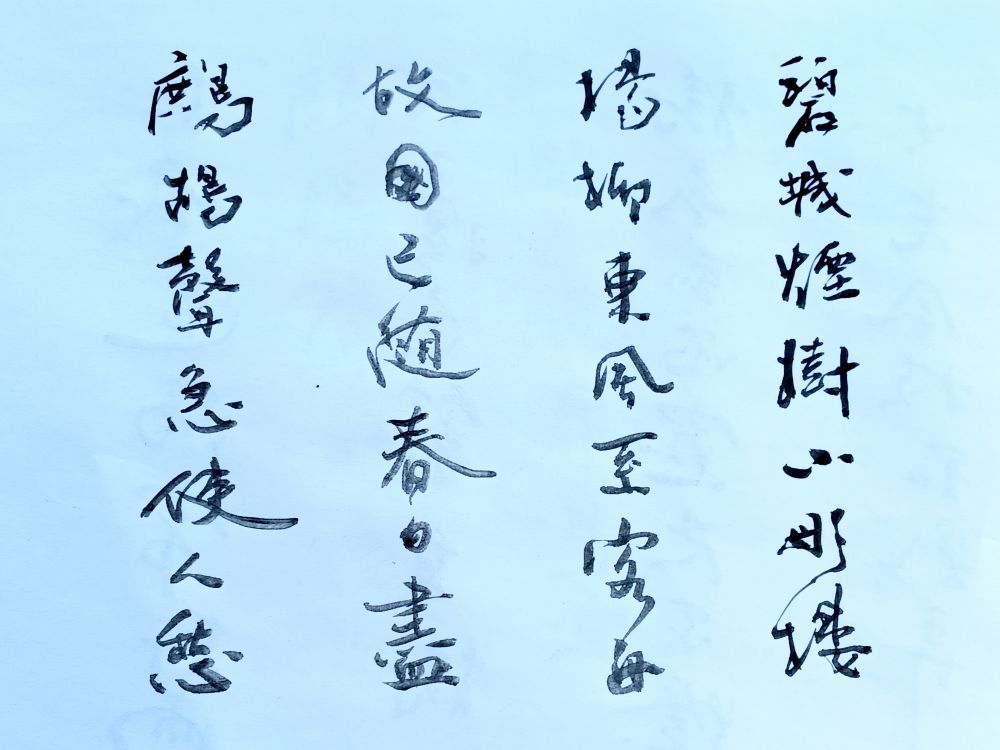 碧城煙樹小彤樓
楊柳東風至客舟
故國已隨春日盡
鷓鴣聲急使人愁